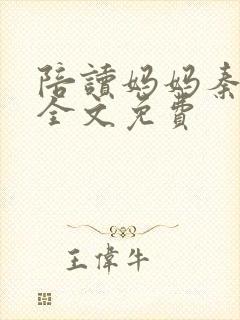 陪讀妈妈秦
全文免費
王偉牛